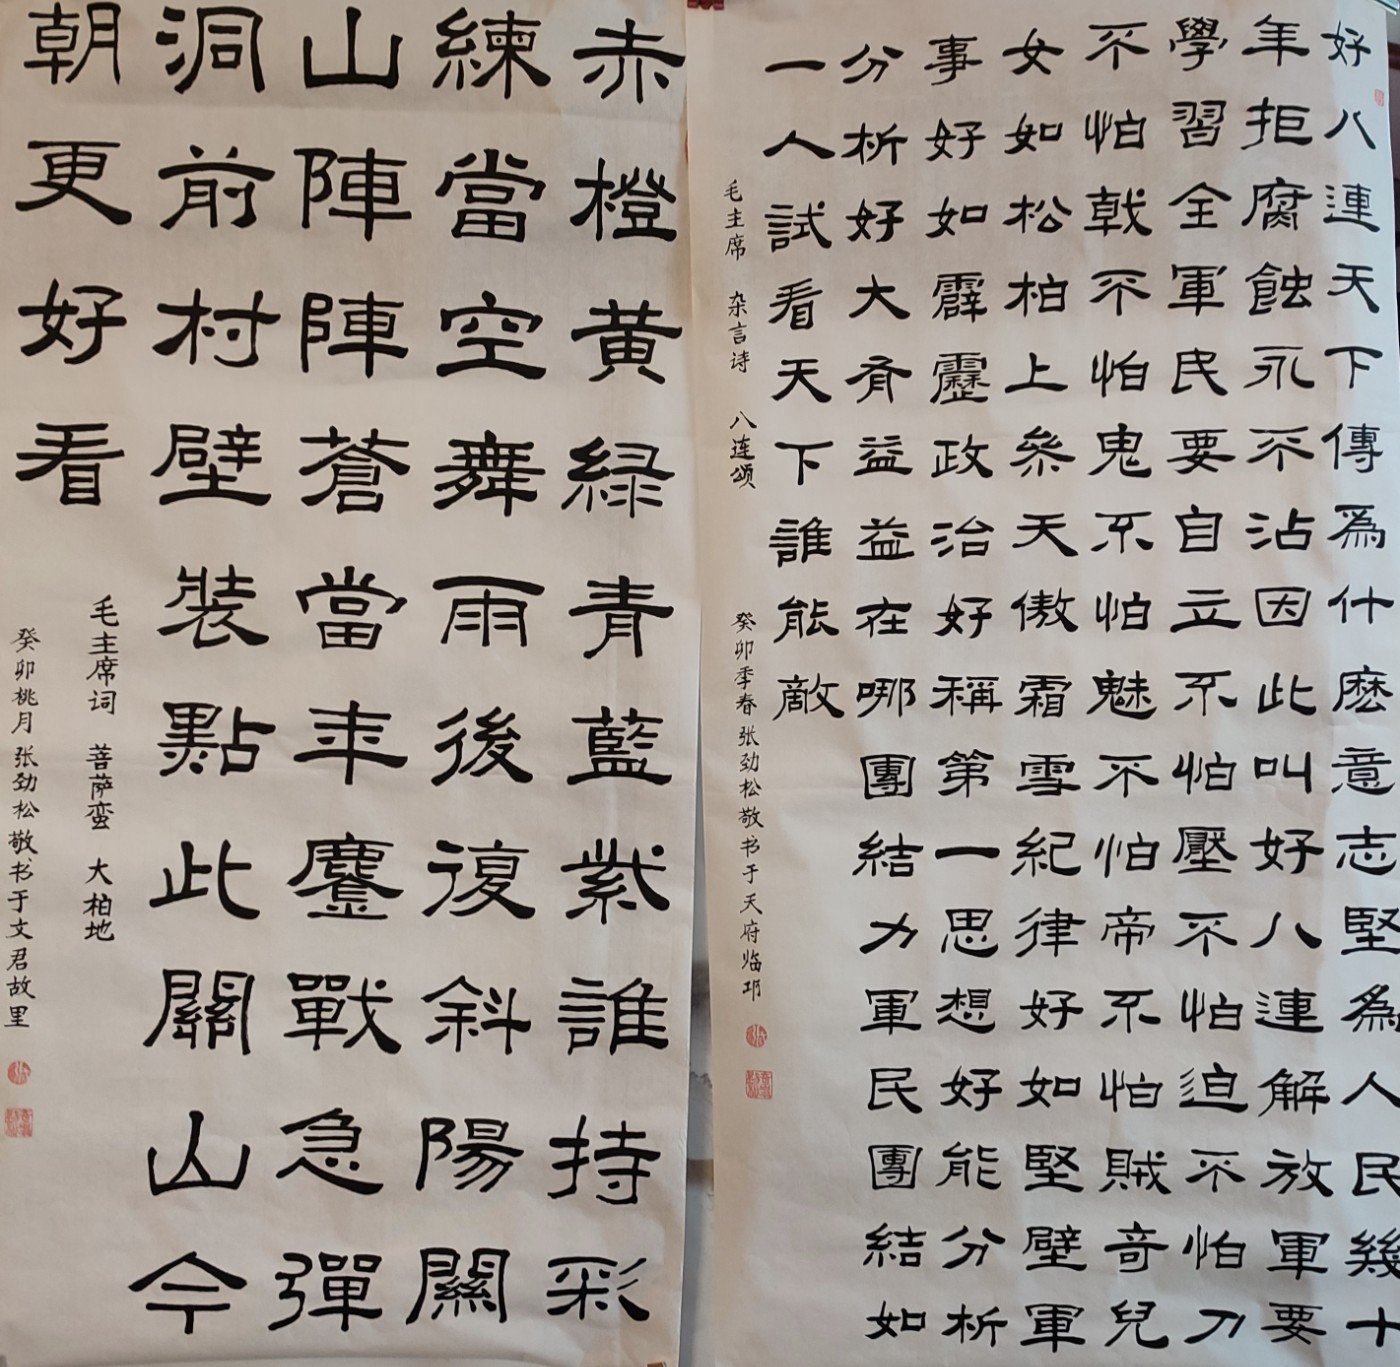 好八連天下傳爲什麽意志堅為人民幾十
年拒腐蝕永不沾因此叫好八連解放軍要
學習全軍民要自立不怕壓不怕迫不怕刀
不怕戟不怕鬼不怕魅不怕帝不怕賊奇兒
女如松柏上參天傲霜雪紀律好如堅壁軍
事好如霹靂政治好稱第一思想好能分析
分析好大有益益在哪團結力軍民團結如
一人試看天下誰能敵
毛主席 杂言诗 八连颂
癸卯季春张劲松敬书于天府临邛
赤橙黄緑青藍紫誰持彩
練當空舞雨後復斜陽關
山陣陣蒼當年鏖戰急彈
洞前村壁裝點此關山今
朝更好看
毛主席词 菩萨蛮 大柏地
癸卯桃月张劲松敬书于文君故里